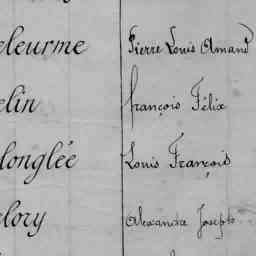 eleurme Pierre Louis Amand
elin françois Félix
longlée Louis François
elory Alexandre Joseph